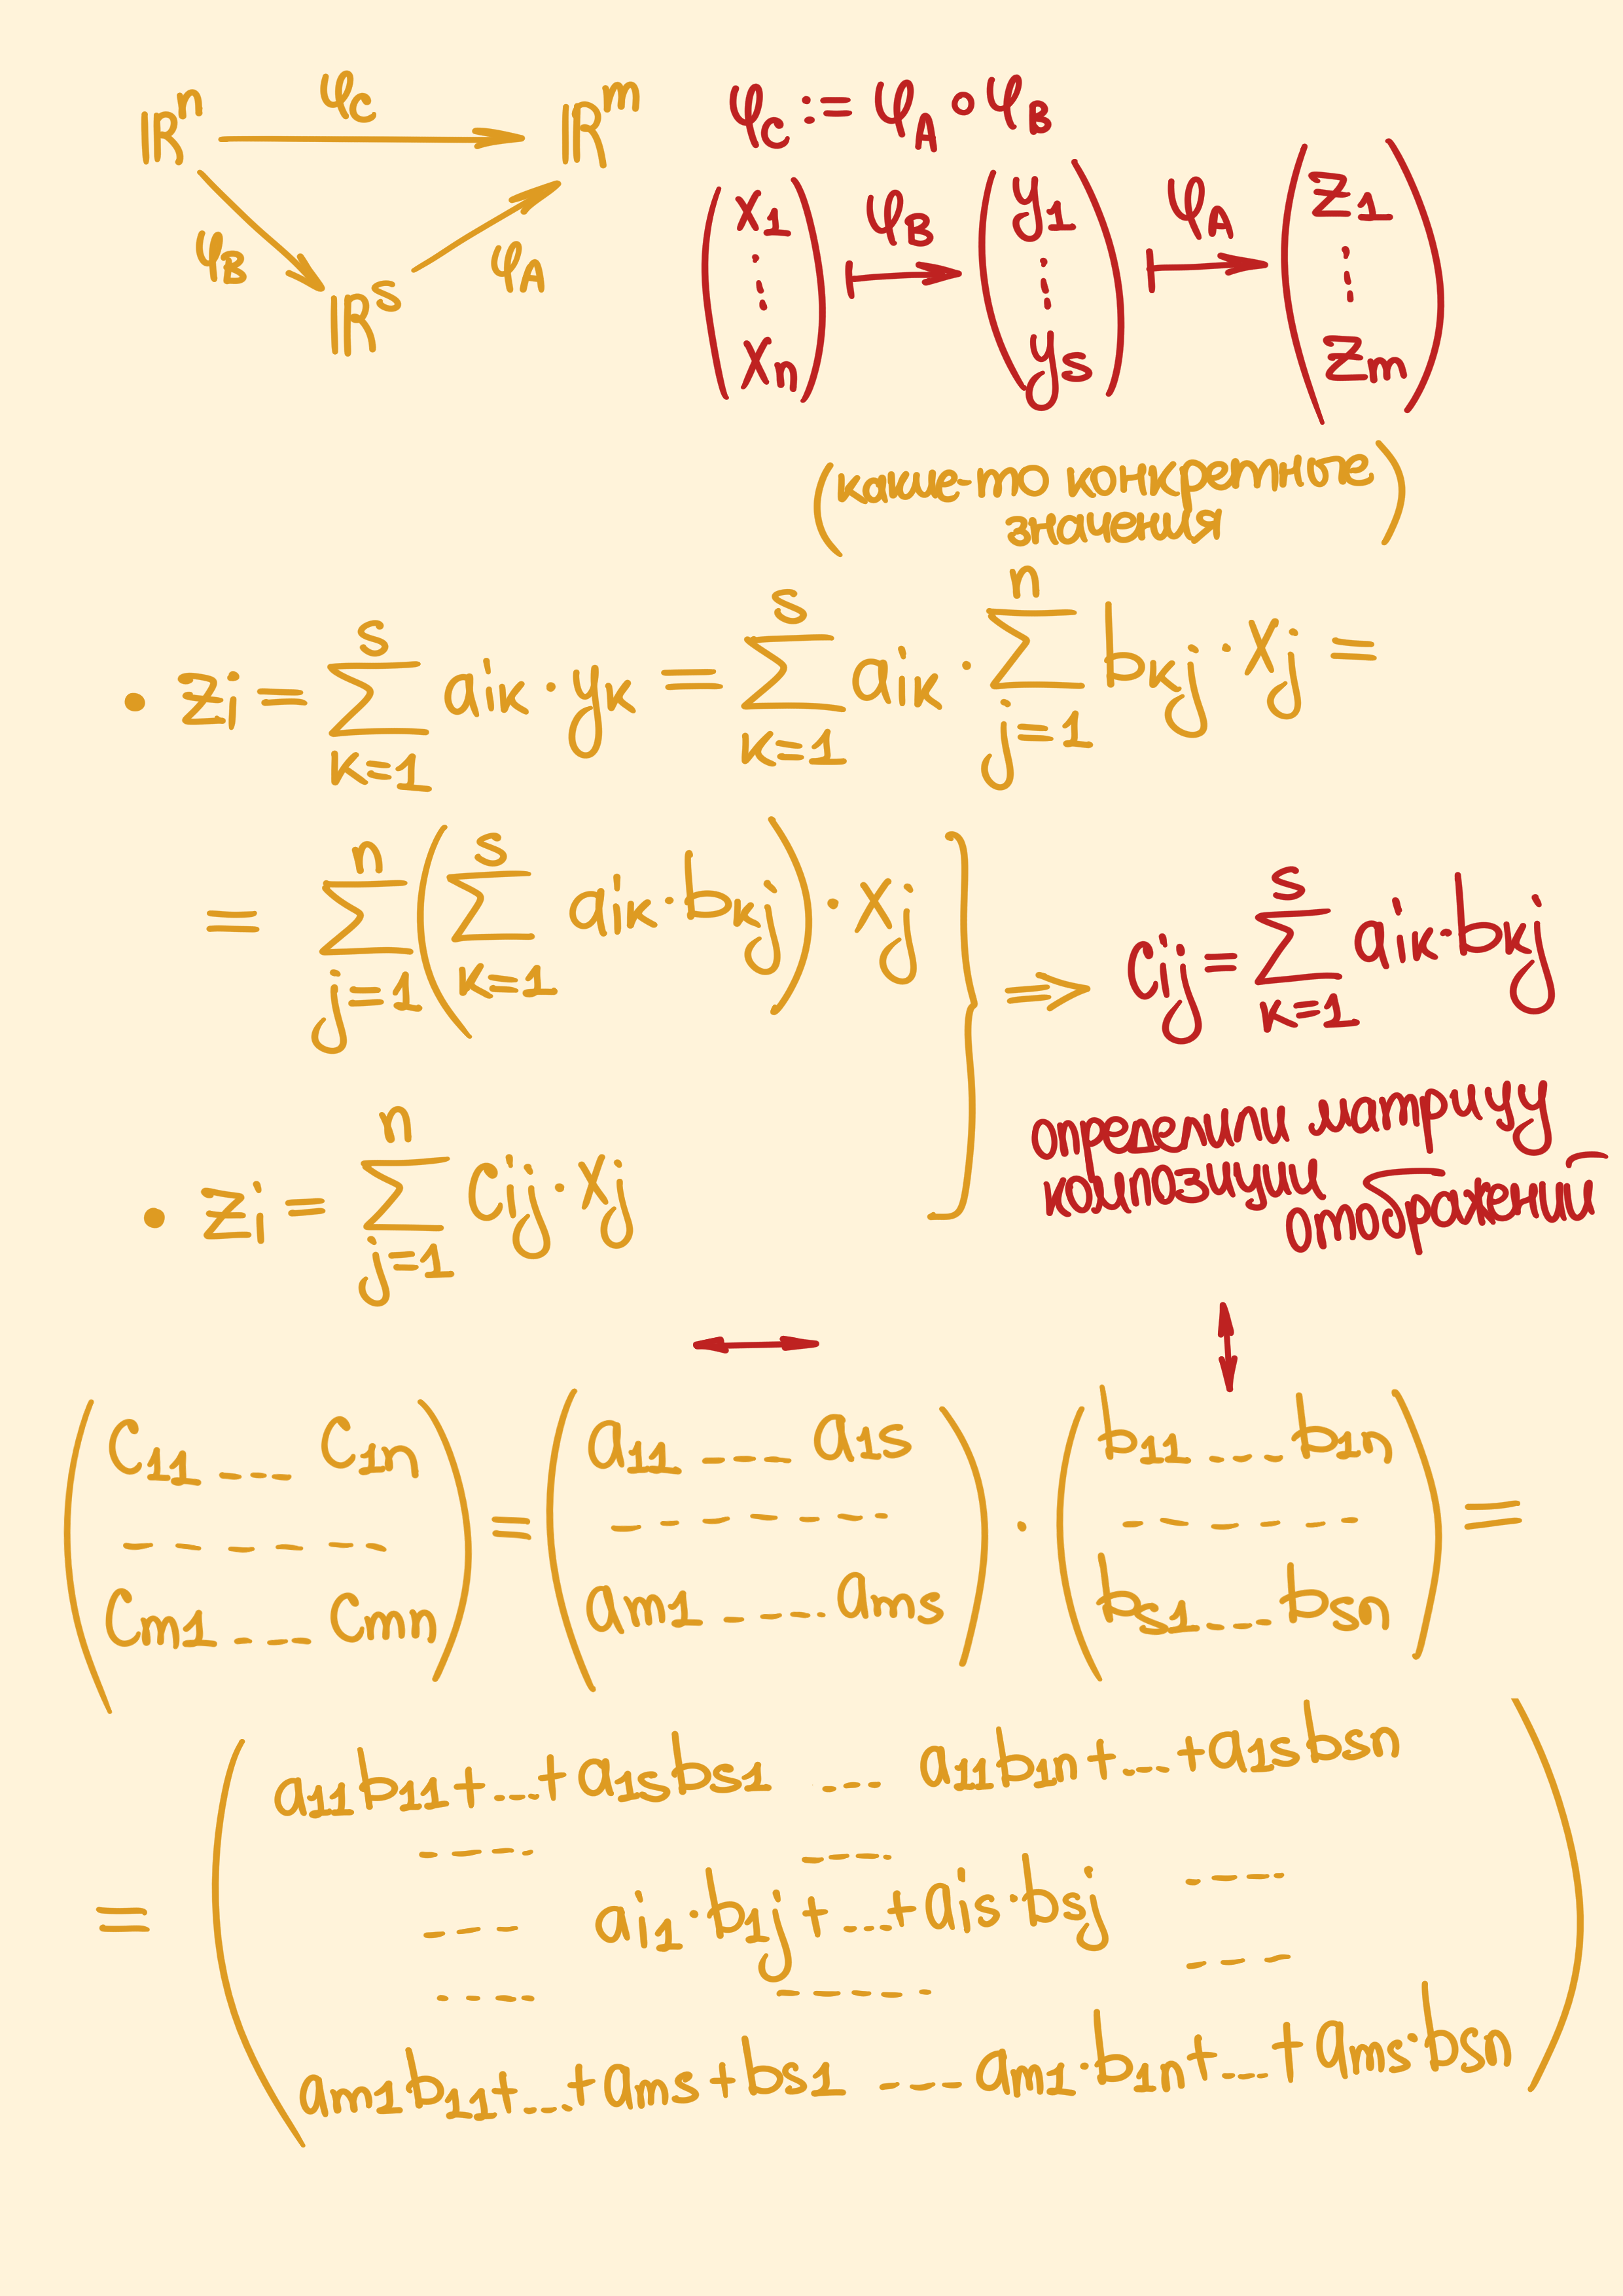 ℝⁿ φ_C ℝᵐ
φ_B φ_A
ℝˢ
φ_C := φ_A ∘ φ_B
(x₁ ⋮ xₙ) ↦ φ_B (y₁ ⋮ y_s) ↦ φ_A (z₁ ⋮ z_m)
(какие-то конкретные
значения)
• z_i = ∑_{k=1}^{s} a_{ik} · y_k = ∑_{k=1}^{s} a_{ik} · ∑_{j=1}^{n} b_{kj} · x_j =
= ∑_{j=1}^{n} (∑_{k=1}^{s} a_{ik} · b_{kj}) · x_j
• z_i = ∑_{j=1}^{n} c_{ij} · x_j
} ⇒ c_{ij} = ∑_{k=1}^{s} a_{ik} · b_{kj}
определили матрицу
композиции
отображений
↔ ↕
(c_{11} ---- c_{1n} = (a_{11} ---- a_{1s}) · (b_{11} ---- b_{1n}) =
- - - - - - - - - - - - - - - - -
c_{m1} ---- c_{mn}) a_{m1} ---- a_{ms} b_{s1} ---- b_{sn}
a_{11}b_{11}+...+a_{1s}b_{s1} --- a_{11}b_{1n}+...+a_{1s}b_{sn}
---- ---- ----
= --- a_{i1}·b_{1j}+...+a_{is}·b_{sj} ---
---- -----
a_{m1}b_{11}+...+a_{ms}+b_{s1} ---- a_{m1}·b_{1n}+...+a_{ms}·b_{sn}